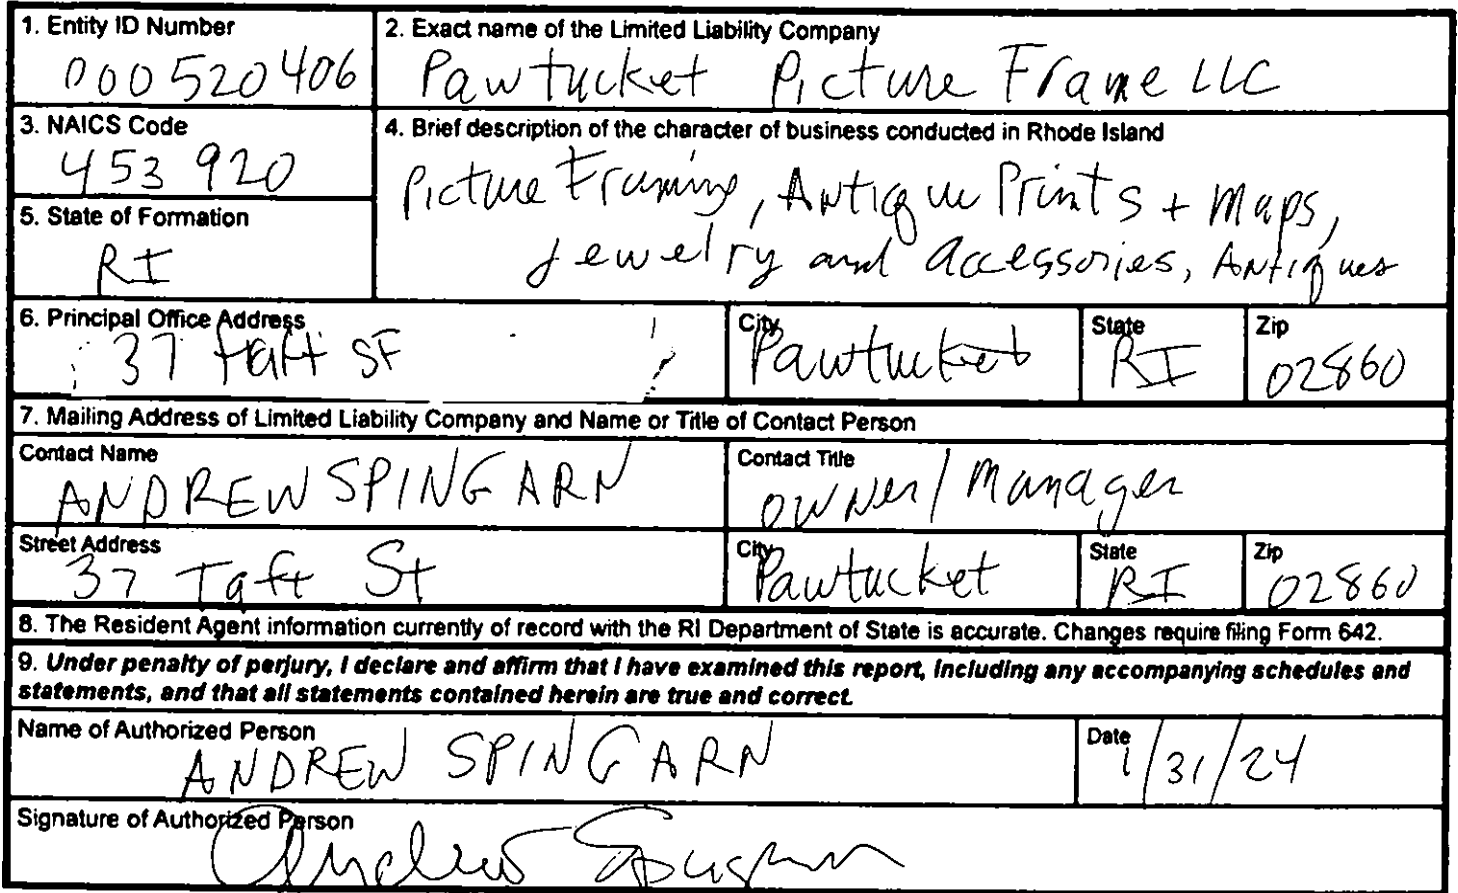 1. Entity ID Number
000520406
2. Exact name of the Limited Liability Company
Pawtucket Picture Frame LLC
3. NAICS Code
453920
4. Brief description of the character of business conducted in Rhode Island
Picture Framing, Antique Prints + Maps,
Jewelry and Accessories, Antiques
5. State of Formation
RI
6. Principal Office Address
37 taft St
City
Pawtucket
State
RI
Zip
02860
7. Mailing Address of Limited Liability Company and Name or Title of Contact Person
Contact Name
ANDREW SPINGARN
Contact Title
owner/Manager
Street Address
37 Taft St
City
Pawtucket
State
RI
Zip
02860
8. The Resident Agent information currently of record with the RI Department of State is accurate. Changes require filing Form 642.
9. Under penalty of perjury, I declare and affirm that I have examined this report, including any accompanying schedules and
statements, and that all statements contained herein are true and correct.
Name of Authorized Person
ANDREW SPINGARN
Date
1/31/24
Signature of Authorized Person
Andrew Spingarn